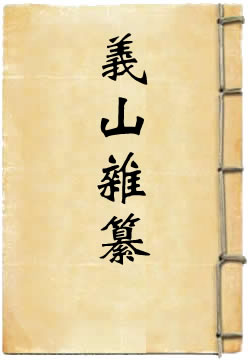 義山雜纂